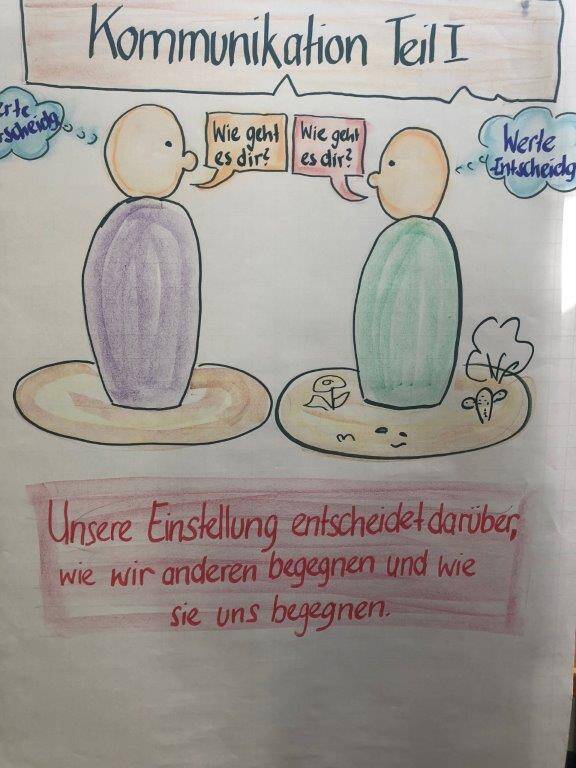 Kommunikation Teil I
erte
rscheidg
Wie geht
es dir?
Wie geht
es dir?
Werte
Entscheidg
Unsere Einstellung entscheidet darüber,
wie wir anderen begegnen und wie
sie uns begegnen.